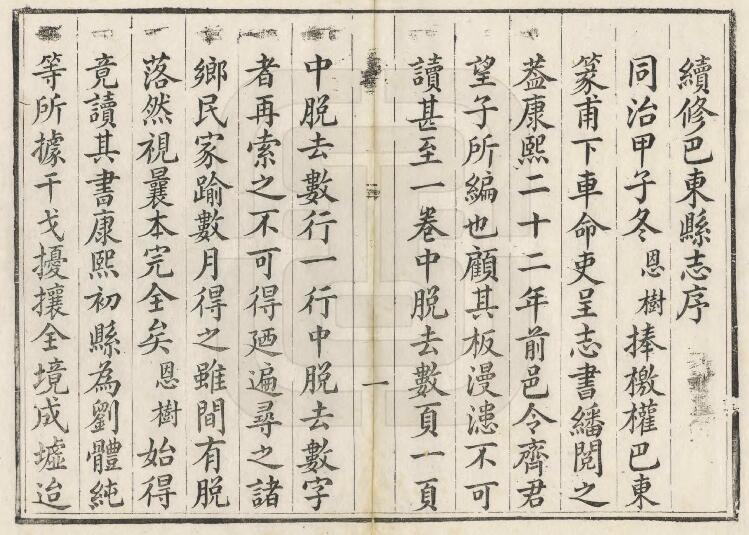 續修巴東縣志序
同治甲子冬恩樹捧檄權巴東
篆甫下車命吏呈志書繙閱之
葢康熙二十二年前邑令齊君
望子所編也顧其板漫漶不可
讀甚至一卷中脱去數頁一頁
一
中脱去數行一行中脱去數字
者再索之不可得廼遍尋之諸
鄉民家踰數月得之雖間有脱
落然視曩本完全矣恩樹始得
竟讀其書康熙初縣為劉體純
等所據干戈擾攘全境成墟迨